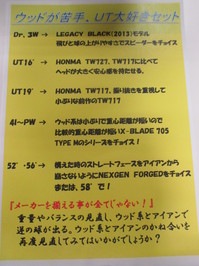 ウッドが苦手、UT大好きセット
Dr、3W → LEGACY BLACK(2013)モデル
飛びと球の上がりやすさでスピーダーをチョイス
UT16° → HONMA TW727、TW717に比べて
ヘッドが大きく安心感を持たせる。
UT19° → HONMA TW717、振り抜きを重視して
小ぶりな前作のTW717
4I~PW → ウッド系は小ぶりで重心距離が短いので
比較的重心距離が短いX-BLADE 705
TYPE Mのシリーズをチョイス!
52°・56° → 構えた時のストレートフェースをアイアンから
崩さないようにNEXGEN FORGEDをチョイス!
または、58°で!
『メーカーを揃える事が全てじゃない!』
重量やバランスの見直し、ウッド系とアイアンで
逆の球が出る。ウッドとアイアンのかね合いを
再度見直してみてはいかがでしょうか?